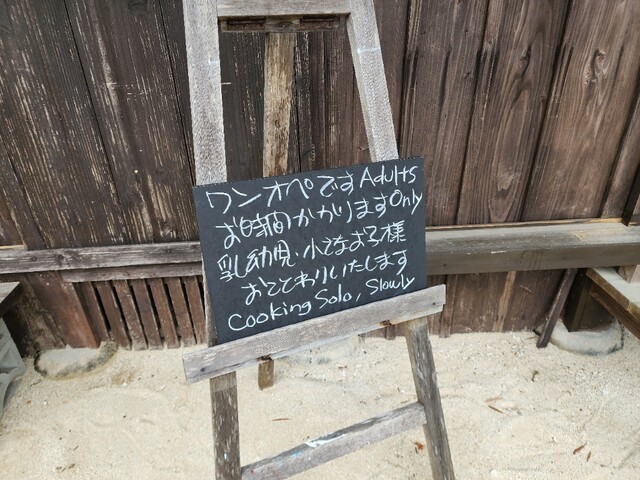 ワンオペです Adults
お時間かかります Only
乳幼児・小さなお子様
おことわりいたします
Cooking Solo, Slowly